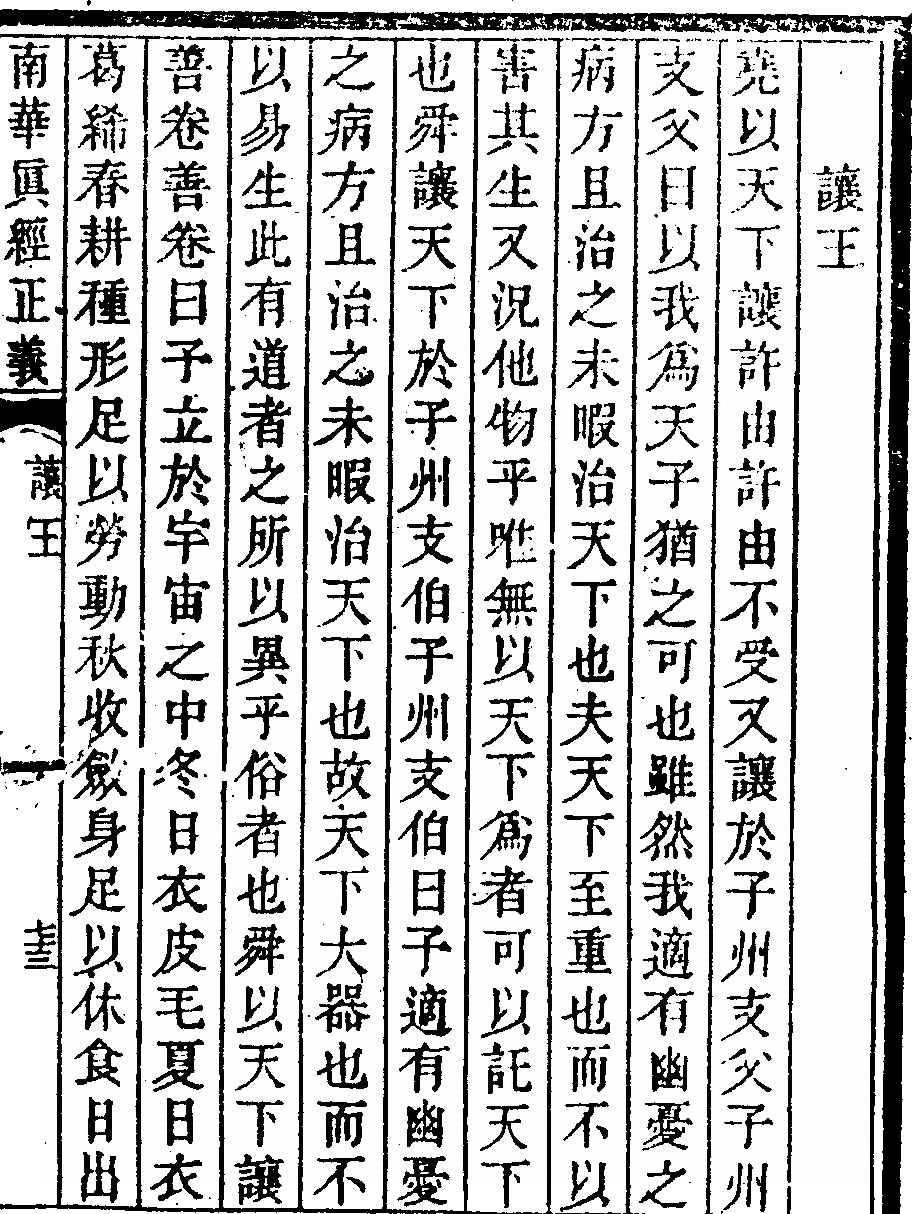 讓王
堯以天下讓許由許由不受又讓於子州支父子州
支父曰以我爲天子猶之可也雖然我適有幽憂之
病方且治之未暇治天下也夫天下至重也而不以
害其生又況他物乎唯無以天下爲者可以託天下
也舜讓天下於子州支伯子州支伯曰子適有幽憂
之病方且治之未暇治天下也故天下大器也而不
以易生此有道者之所以異乎俗者也舜以天下讓
善卷善卷曰予立於宇宙之中冬日衣皮毛夏日衣
葛絺春耕種形足以勞動秋收斂身足以休食日出
南華眞經正義
讓王